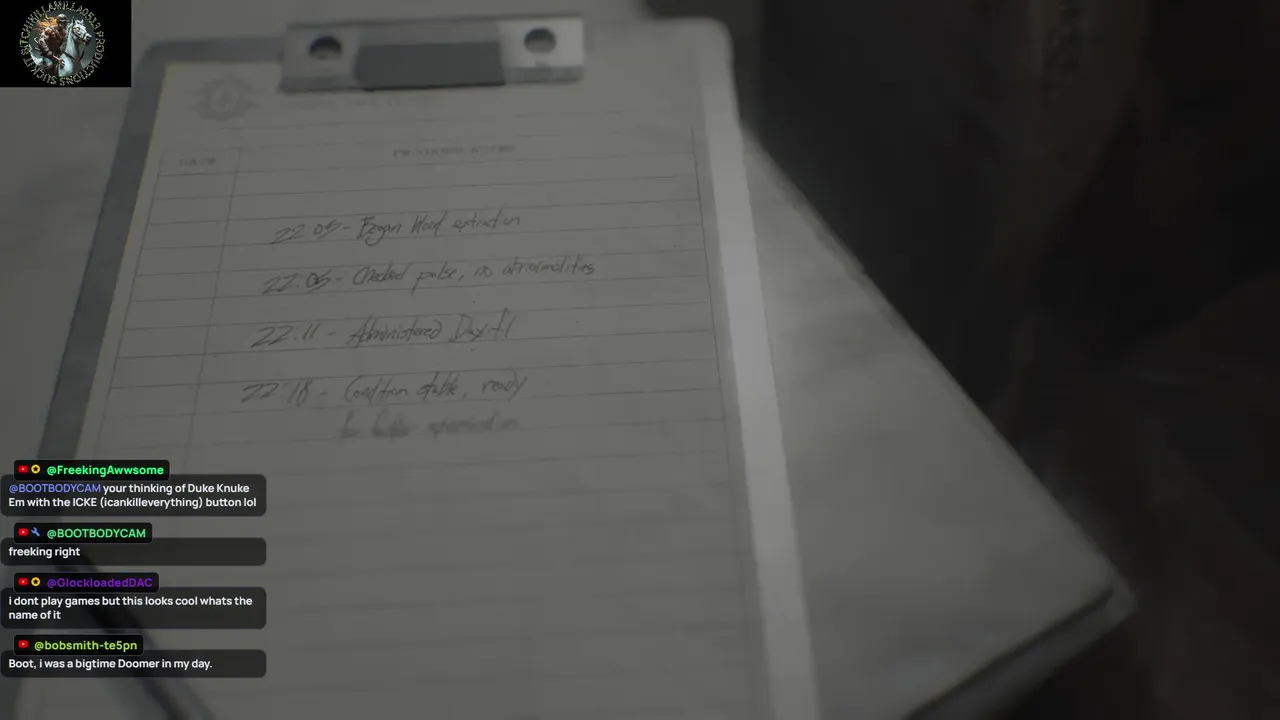 DATE
22.05 - Began blood extraction
22.08 - Checked pulse, no abnormalities
22.11 - Administered
22.18 - Condition stable, ready
for further
@FreekingAwwsome
@BOOTBODYCAM your thinking of Duke Knuke
Em with the ICKE (icankilleverything) button lol
@BOOTBODYCAM
freeking right
@GlockloadedDAC
i dont play games but this looks cool whats the
name of it
@bobsmith-te5pn
Boot, i was a bigtime Doomer in my day.